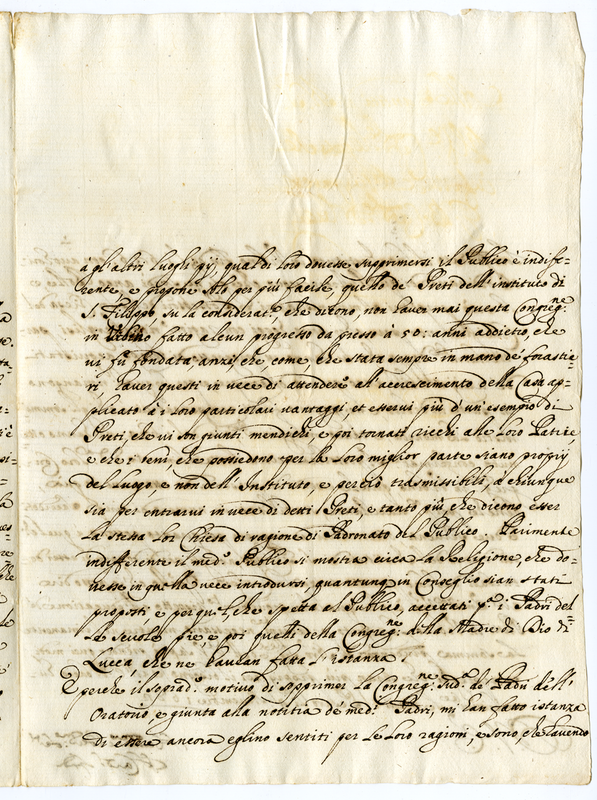 à gl'altri luoghi pij, qual di loro dovesse supprimersi il Publico è indife-
rente, e propone solo per più facile, quello de' Preti dell'instituto di
S. Filippo, su la considerat.e che dicono, non haver mai questa Congreg.ne
in Urbino fatto alcun progresso da presso à 50: anni addietro, che
vi fù fondata, anzi che come, che stata sempre in mano de' forastie-
ri, haver questi in vece di attendere all'accrescimento della Casa ap-
plicato à i loro particolari vantaggi, et esservi più d'un esempio di
Preti, che vi son giunti mendichi, e poi tornati ricchi alle loro Patrie
e che i beni, che possiedono per la loro miglior parte siano proprij
del luogo, e non dell'Instituto, e perciò trasmissibili, à chiunque
sia per entrarvi in vece di detti Preti, e tanto più, che dicono esser
la stessa lor Chiesa di ragione di Padronato del Publico. Parimente
indifferente il med.o Publico si mostra circa la Religione, che do-
vesse in quella vece introdursi, quantunq in Conseglio sian stati
proposti, e per quel, che spetta al Publico, accettati p.a i Padri del
le Scuole Pie, e poi quelli della Congreg.ne della Madre di Dio di
Lucca, che ne havean fatta l'istanza.
E perche il soprad.o motivo di sopprimer la Congreg.ne sud.a de' Padri dell'
Oratorio, è giunta alla notitia de' med.i Padri, mi han fatto istanza
di essere ancora eglino sentiti per le loro ragioni, e sono, che havendo